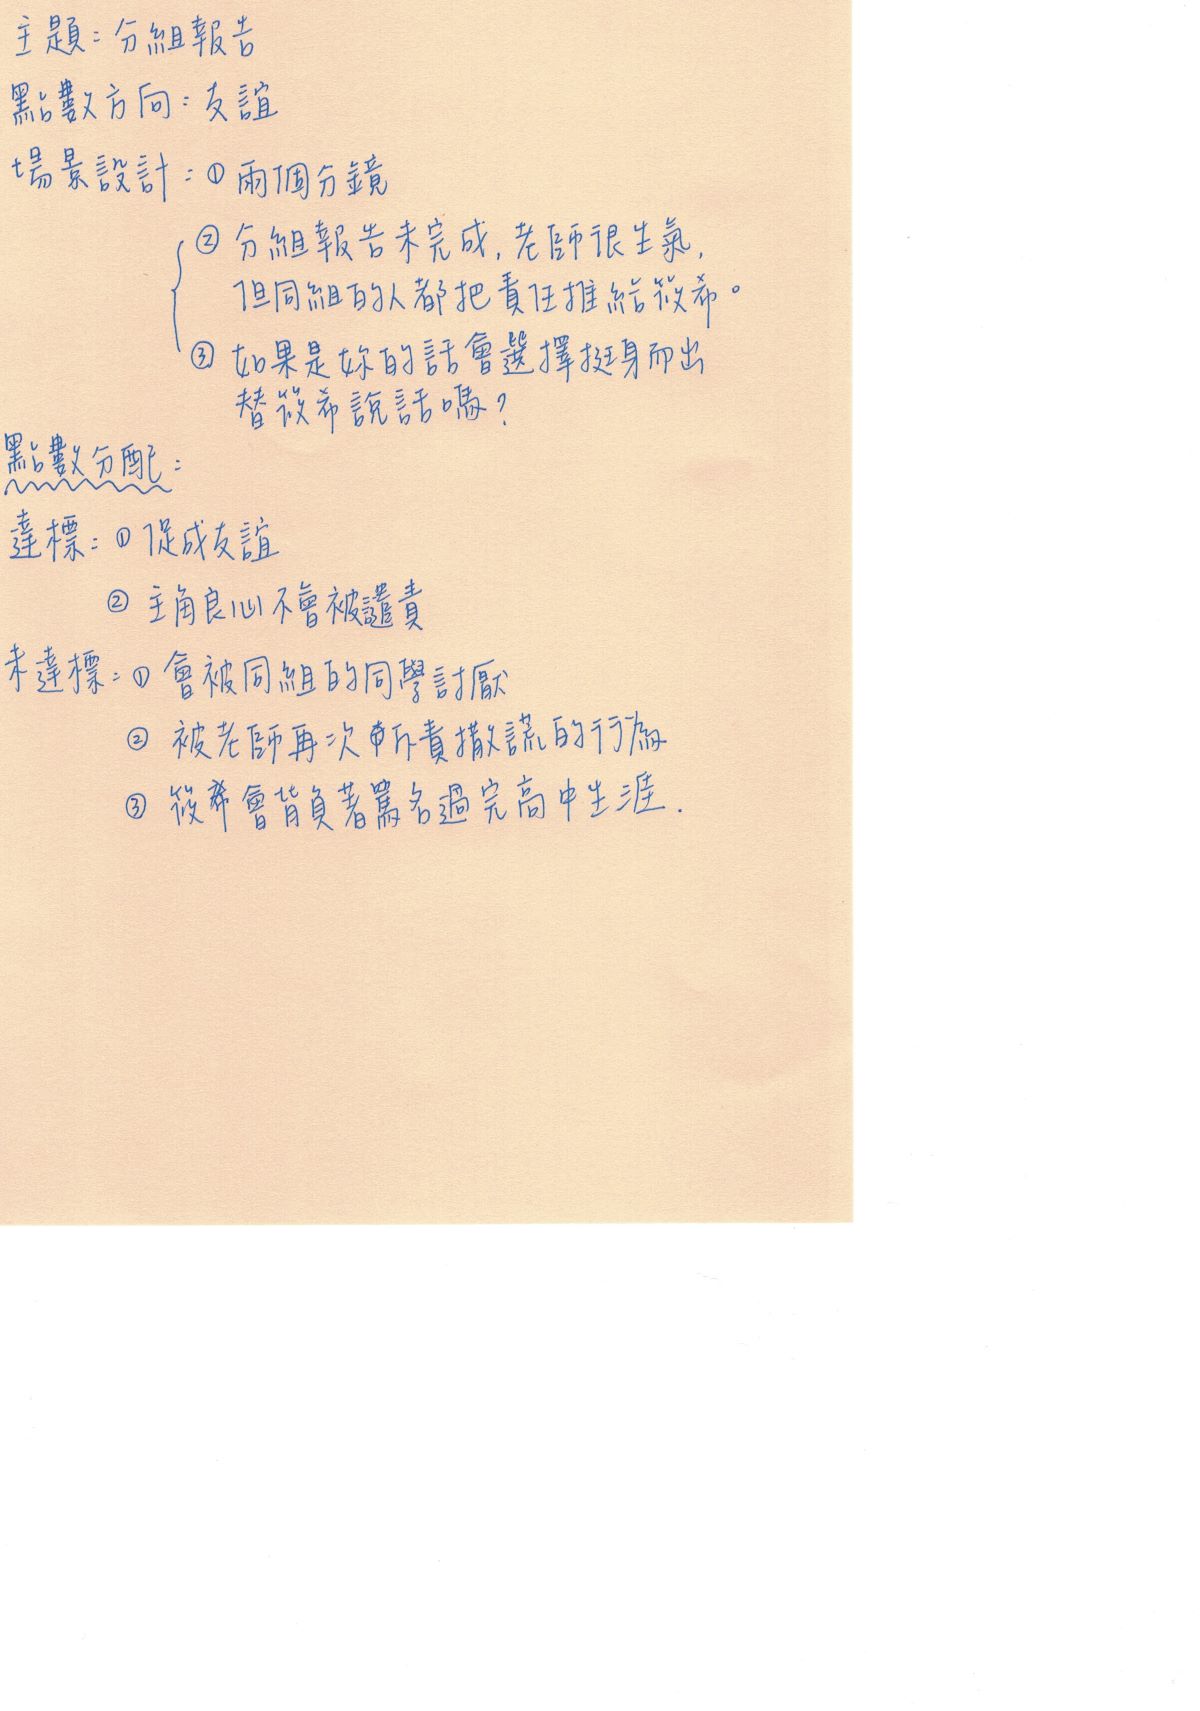 主題：分組報告
點數方向：友誼
場景設計：① 兩個分鏡
② 分組報告未完成，老師很生氣，
但同組的人都把責任推給筱希。
③ 如果是妳的話會選擇挺身而出
替筱希說話嗎？
點數分配：
達標：① 促成友誼
② 主角良心不會被譴責
未達標：① 會被同組的同學討厭
② 被老師再次斥責撒謊的行為
③ 筱希會背負著罵名過完高中生涯.